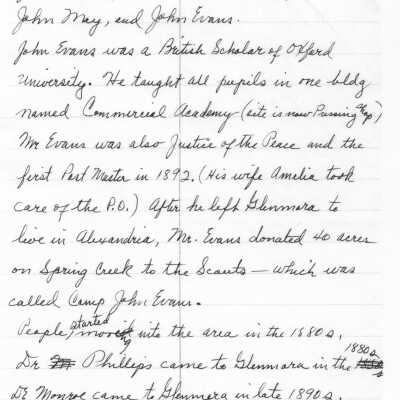 John May, and John Evans.
John Evans was a British Scholar of Oxford
University. He taught all pupils in one bldg
named Commercial Academy (site is now Pruning & Exp)
Mr Evans was also Justice of the Peace and the
first Post Master in 1892. (His wife Amelia took
care of the P.O.) After he left Glenmora to
live in Alexandria, Mr. Evans donated 40 acres
on Spring Creek to the Scouts — which was
called Camp John Evans.
People, started moving into the area in the 1880s.
Dr Phillips came to Glenmora in the 1880s
Dr Monroe came to Glenmora in late 1890s.